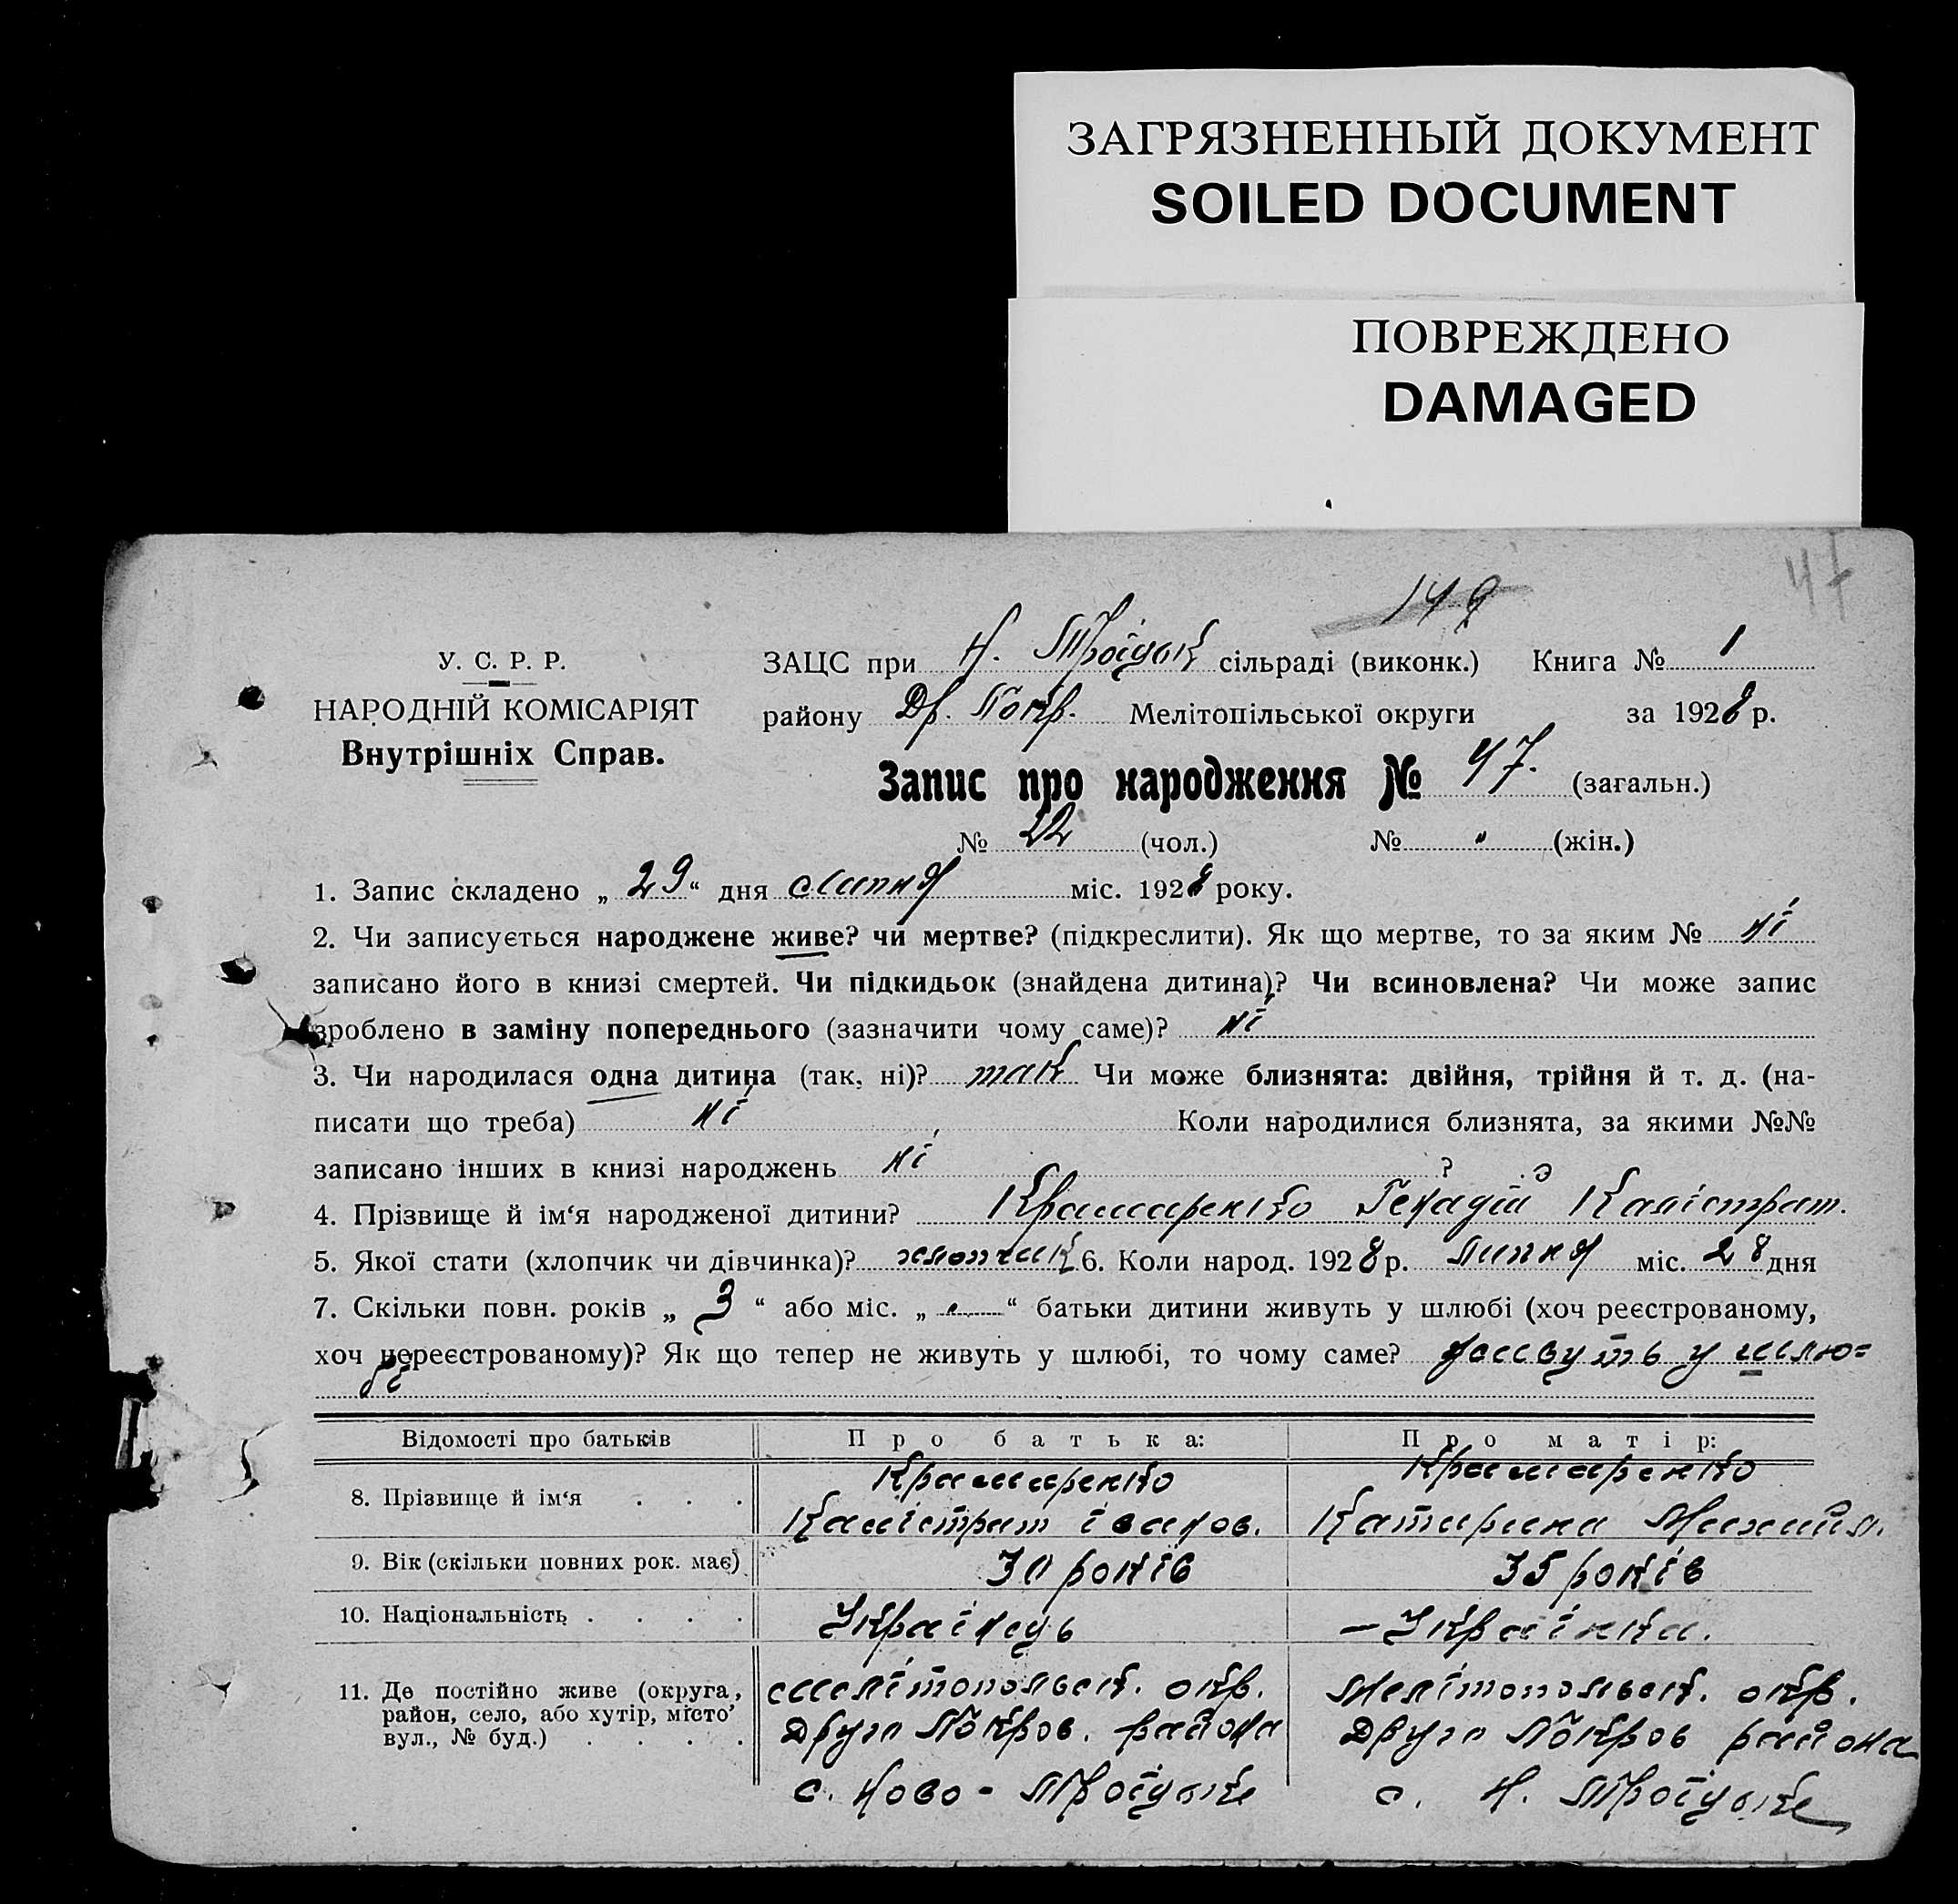 ЗАГРЯЗНЕННЫЙ ДОКУМЕНТ
SOILED DOCUMENT
ПОВРЕЖДЕНО
DAMAGED
47
149
У. С. Р. Р.
НАРОДНІЙ КОМІСАРІЯТ
Внутрішніх Справ.
ЗАЦС при Н. Троїцьк сільраді (виконк.) Книга № 1
району Др. Покр. Мелітопільської округи за 1928 р.
Запис про народження № 47. (загальн.)
№ 22 (чол.) № " (жін.)
1. Запис складено „ 29 “ дня Липня міс. 1928 року.
2. Чи записується народжене живе? чи мертве? (підкреслити). Як що мертве, то за яким № ні
записано його в книзі смертей. Чи підкидьок (знайдена дитина)? Чи всиновлена? Чи може запис
зроблено в заміну попереднього (зазначити чому саме)? ні
3. Чи народилася одна дитина (так, ні)? так Чи може близнята: двійня, трійня й т. д. (на-
писати що треба) ні Коли народилися близнята, за якими №№
записано інших в книзі народжень ні ?
4. Прізвище й ім‘я народженої дитини? Крамаренко Генадій Калістрат.
5. Якої стати (хлопчик чи дівчинка)? хлопчик 6. Коли народ. 1928 р. Липня міс. 28 дня
7. Скільки повн. років „ 3 “ або міс. „ “ батьки дитини живуть у шлюбі (хоч реєстрованому,
хоч нереєстрованому)? Як що тепер не живуть у шлюбі, то чому саме? живуть у шлю=
бі
Відомості про батьків Про батька: Про матір:
8. Прізвище й ім‘я . . . Крамаренко Калістрат іванов. Крамаренко Катирина Михайл.
9. Вік (скільки повних рок. має) 30 років 35 років
10. Національність . . . . Українець – Українка.
11. Де постійно живе (округа, Мелітопольськ. окр. Мелітопольськ. окр.
район, село, або хутір, місто, Друго Покров. района Друго Покров района
вул., № буд.) . . . . с. Ново - Троїцьке с. Н. Троїцьке